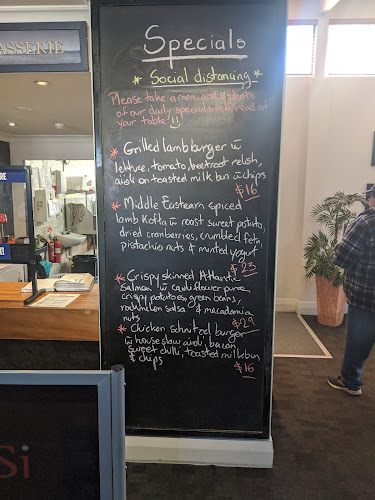 ASSERIE
Specials
* Social distancing *
Please take a menu and a photo
of our daily specials & to read at
your table !!
* Grilled lamb burger w
lettuce, tomato, beetroot relish,
aioli on toasted milk bun w chips
$16
* Middle Eastern spiced
lamb Kofta w roast sweet potato,
dried cranberries, crumbled feta,
pistachio nuts & minted yogurt
$23
* Crispy skinned Atlantic
Salmon w cauliflower puree,
crispy potatoes, green beans,
salsa & macadamia
nuts
$29
* Chicken schnitzel burger
w house slaw, aioli, bacon,
sweet chilli, toasted milk bun
& chips
$16
Si